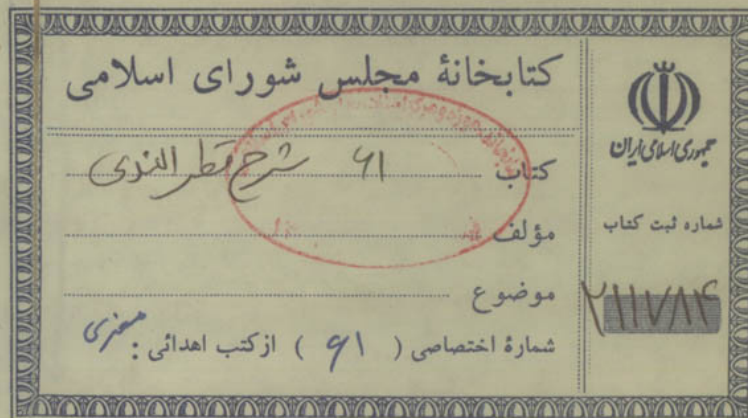 کتابخانهٔ مجلس شورای اسلامی
کتاب ۶۱ شرح قطر الندی
مؤلف
موضوع
شمارهٔ اختصاصی ( ۶۱ ) از کتب اهدائی :
جمهوری اسلامی ایران
شماره ثبت کتاب
۲۱۱۷۸۴